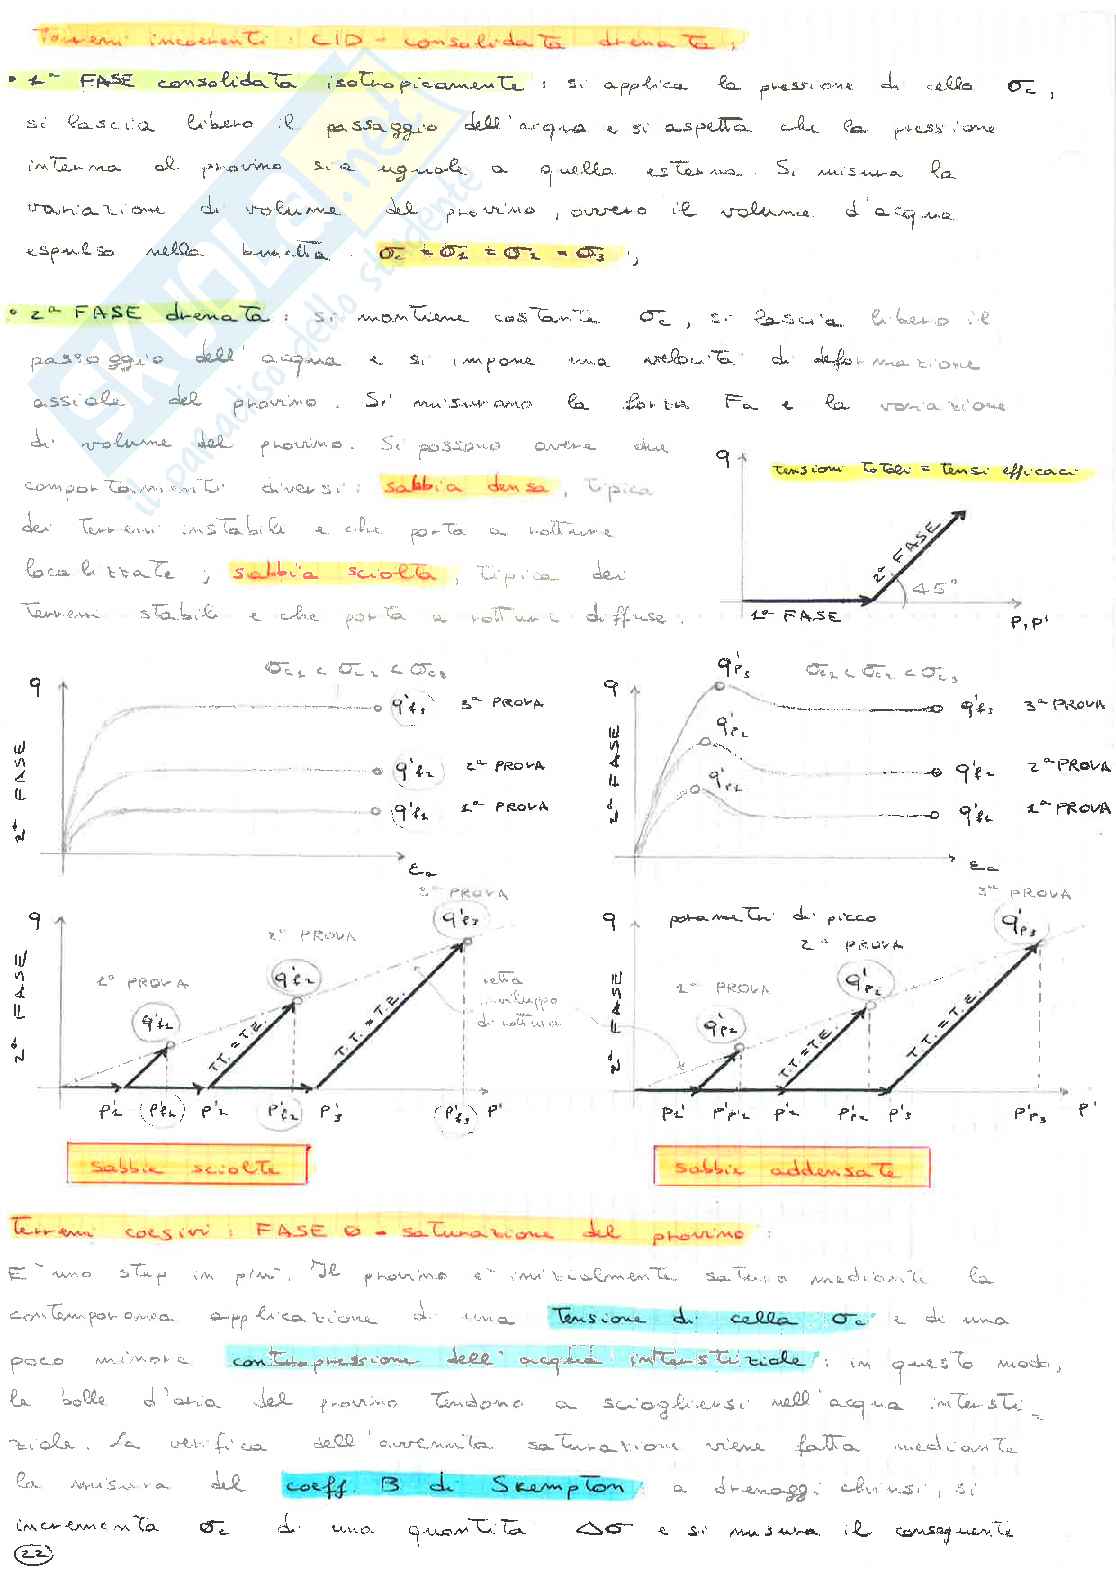 Terreni incoerenti : CID - consolidata drenata ;
• 1ª FASE consolidata isotropicamente : si applica la pressione di cella σc ,
si lascia libero il passaggio dell'acqua e si aspetta che la pressione
interna al provino sia uguale a quella esterna. Si misura la
variazione di volume del provino, ovvero il volume d'acqua
espulso nella buretta . σc = σ1 = σ2 = σ3 ;
• 2ª FASE drenata : si mantiene costante σc , si lascia libero il
passaggio dell'acqua e si impone una velocità di deformazione
assiale del provino. Si misurano la forza Fa e la variazione
di volume del provino. Si possono avere due
comportamenti diversi : sabbia densa, tipica
dei terreni instabili e che porta a rotture
localizzate ; sabbia sciolta, tipica dei
terreni stabili e che porta a rotture diffuse.
q
tensioni totali = tensi efficaci
2ª FASE
45°
1ª FASE
p, p'
σc1 < σc2 < σc3
q
q'f3 3ª PROVA
q'f2 2ª PROVA
q'f1 1ª PROVA
2ª FASE
εa
σc1 < σc2 < σc3
q
q'p3
q'p2
q'p1
q'f3 3ª PROVA
q'f2 2ª PROVA
q'f1 1ª PROVA
2ª FASE
εa
q
3ª PROVA
2ª PROVA
1ª PROVA
q'f3
q'f2
q'f1
T.T. = T.E.
T.T. = T.E.
retta
inviluppo
di rottura
2ª FASE
p'1 p'f1 p'2 p'f2 p'3 p'f3 p'
q
parametri di picco
3ª PROVA
2ª PROVA
1ª PROVA
q'p3
q'p2
q'p1
T.T. = T.E.
T.T. = T.E.
2ª FASE
p1' p'p1 p'2 p'p2 p'3 p'p3 p'
sabbie sciolte
sabbie addensate
terreni coesivi : FASE 0 - saturazione del provino :
E' uno step in più. Il provino e' inizialmente saturo mediante la
contemporanea applicazione di una tensione di cella σc e di una
poco minore contropressione dell'acqua interstiziale : in questo modo,
le bolle d'aria del provino tendono a sciogliersi nell'acqua intersti-
ziale. La verifica dell'avvenuta saturazione viene fatta mediante
la misura del coeff. B di Skempton : a drenaggi chiusi, si
incrementa σc di una quantità Δσ e si misura il conseguente
22
SKUOLA.net
il paradiso dello studente